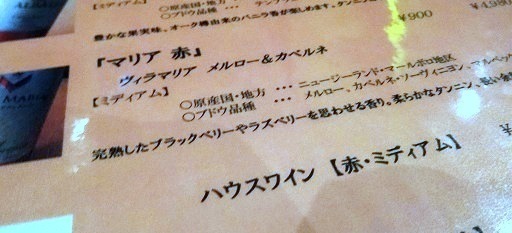 【ミディアム】
○原産国・地方
○ブドウ品種 …
豊かな果実味、オーク樽由来のバニラ香が楽しめます。
¥900
『マリア 赤』
ヴィラマリア メルロー&カベルネ
【ミディアム】
○原産国・地方 … ニュージーランド・マールボロ地区
○ブドウ品種 … メルロー、カベルネ・ソーヴィニヨン、マルベック
完熟したブラックベリーやラズベリーを思わせる香り。柔らかなタンニン、
ハウスワイン 【赤・ミディアム】